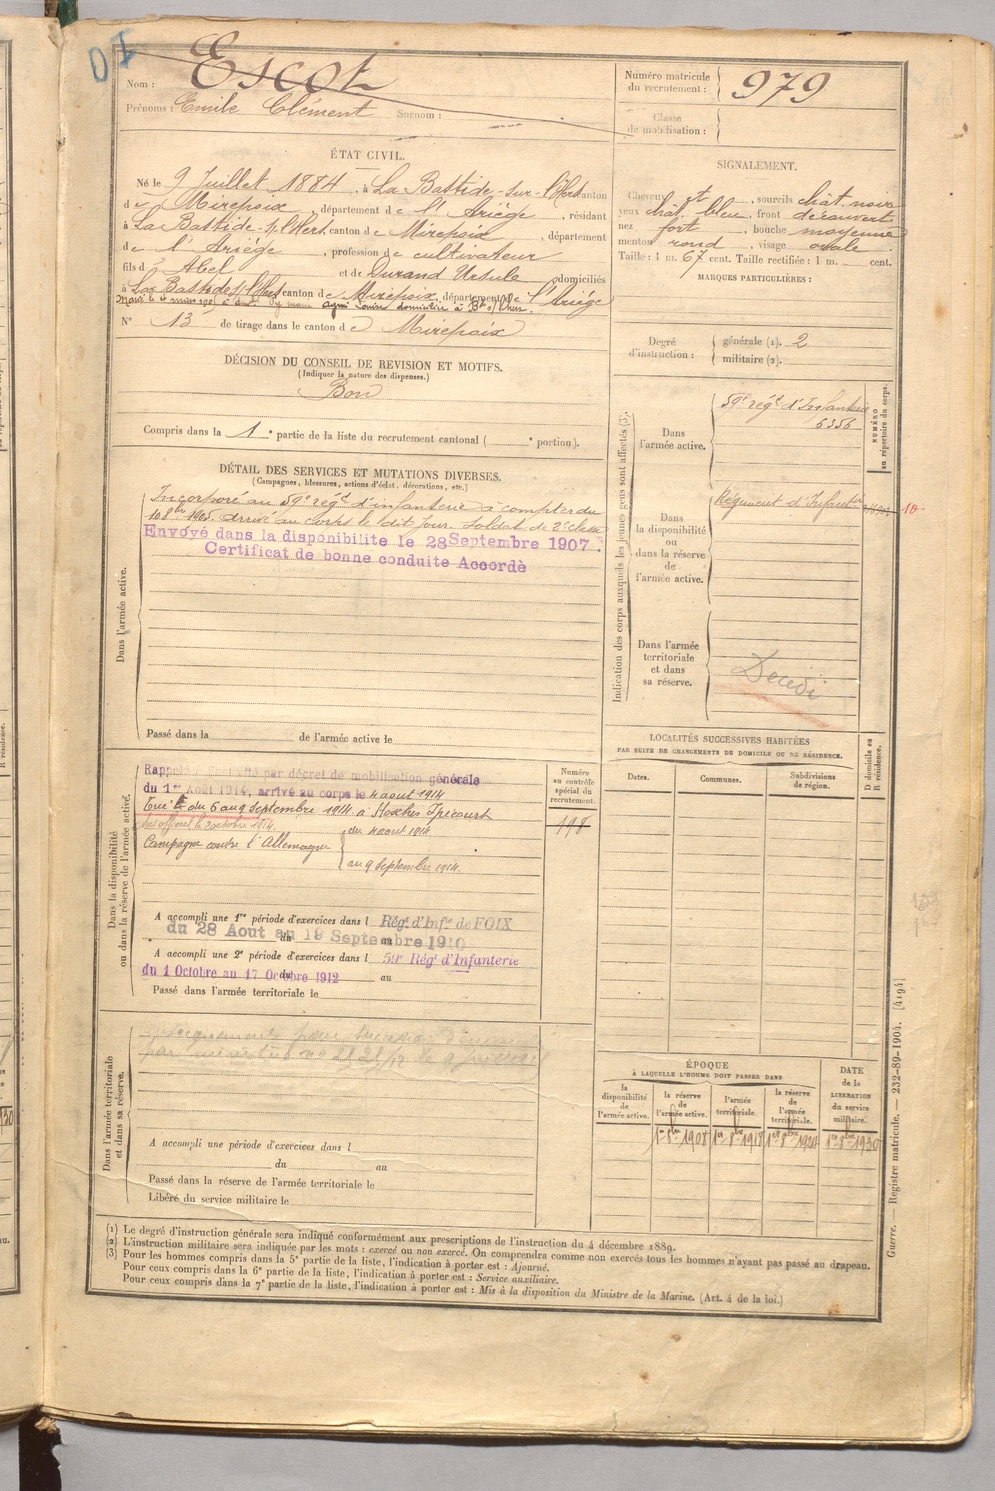 DI
Nom : Escot
Prénoms : Emile Clément Surnom :
Numéro matricule du recrutement : 979
Classe de mobilisation :
ÉTAT CIVIL.
Né le 9 Juillet 1884, à La Bastide-sur-l'Hers canton
de Mirepoix, département de l'Ariège, résidant
à La Bastide-s/l'Hers, canton de Mirepoix, département
de l'Ariège, profession de cultivateur
fils d' Abel et de Durand Ursule domiciliés
à La Bastide s/l'Hers canton de Mirepoix, département de l'Ariège
Marié le 4 mars domicilié à
N° 13 de tirage dans le canton de Mirepoix
SIGNALEMENT.
Cheveux , sourcils chât. noir
yeux chât. bleu, front découvert
nez fort, bouche moyenne
menton rond, visage ovale
Taille : 1 m. 67 cent. Taille rectifiée : 1 m. cent.
MARQUES PARTICULIÈRES :
Degré d'instruction : générale (1). 2
militaire (2).
DÉCISION DU CONSEIL DE REVISION ET MOTIFS.
(Indiquer la nature des dispenses.)
Bon
Compris dans la 1e partie de la liste du recrutement cantonal ( e portion).
DÉTAIL DES SERVICES ET MUTATIONS DIVERSES.
(Campagnes, blessures, actions d'éclat, décorations, etc.)
Dans l'armée active.
Incorporé au 59e régt d'infanterie à compter du
10 8bre 1905. arrivé au corps le dit jour. Soldat de 2e classe
Envoyé dans la disponibilite le 28 Septembre 1907.
Certificat de bonne conduite Accordè
Passé dans la de l'armée active le
Indication des corps auxquels les jeunes gens sont affectés (3).
Dans l'armée active.
59e régt d'Infanterie
6356
NUMÉRO au répertoire du corps.
Dans la disponibilité ou dans la réserve de l'armée active.
Régiment d'Infanterie
10
Dans l'armée territoriale et dans sa réserve.
Décédé
LOCALITÉS SUCCESSIVES HABITÉES
PAR SUITE DE CHANGEMENTS DE DOMICILE OU DE RÉSIDENCE.
Dates.
Communes.
Subdivisions de région.
D domicile ou R résidence.
Dans la disponibilité ou dans la réserve de l'armée active.
Rappelé à l'activité par décret de mobilisation générale
du 1er Août 1914, arrivé au corps le 4 aout 1914
Tué du 6 au 9 Septembre 1914 à
avis officiel le 3 octobre 1914.
Campagne contre l'Allemagne
du 4 aout 1914
au 9 Septembre 1914.
Numéro au contrôle spécial du recrutement.
198
A accompli une 1re période d'exercices dans l Régt d'Infie de FOIX
du 28 Aout au 19 Septembre 1910
du au
A accompli une 2e période d'exercices dans l 59e Régt d'Infanterie
du 1 Octobre au 17 Octobre 1912
du au
Passé dans l'armée territoriale le
Dans l'armée territoriale et dans sa réserve.
A accompli une période d'exercices dans l
du au
Passé dans la réserve de l'armée territoriale le
Libéré du service militaire le
ÉPOQUE
À LAQUELLE L'HOMME DOIT PASSER DANS
la disponibilité de l'armée active.
la réserve de l'armée active.
l'armée territoriale.
la réserve de l'armée territoriale.
DATE de la LIBÉRATION du service militaire.
1er 8bre 1908
1er 8bre 1918
1er 8bre 1924
1er 8bre 1930
Guerre. — Registre matricule. — 232-89-1904. [4194]
(1) Le degré d'instruction générale sera indiqué conformément aux prescriptions de l'instruction du 4 décembre 1889.
(2) L'instruction militaire sera indiquée par les mots : exercé ou non exercé. On comprendra comme non exercés tous les hommes n'ayant pas passé au drapeau.
(3) Pour les hommes compris dans la 5e partie de la liste, l'indication à porter est : Ajourné.
Pour ceux compris dans la 6e partie de la liste, l'indication à porter est : Service auxiliaire.
Pour ceux compris dans la 7e partie de la liste, l'indication à porter est : Mis à la disposition du Ministre de la Marine. (Art. 4 de la loi.)